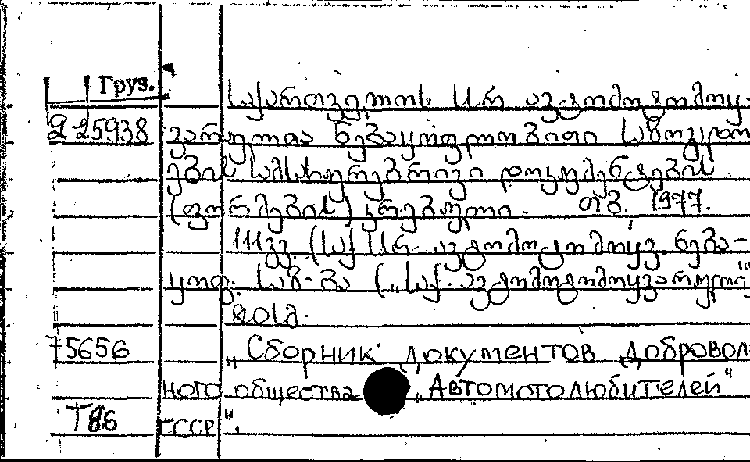 Груз.
საქართველოს სსრ ავტომოტომოყ-
2-25938 ვარულთა ნებაყოფლობითი საზოგადო
ების სამსახურებრივი დოკუმენტების
(ფორმების) კრებული. თბ. 1977.
111 გვ. (საქ სსრ ავტომოტომოყვ. ნება-
ყოფ. საზ-ბა („საქ. ავტომოტომოყვარული“
20 თბ.
75656 „Сборник документов доброволь
ного общества „Автомотолюбителей"
Т86 ГССР".